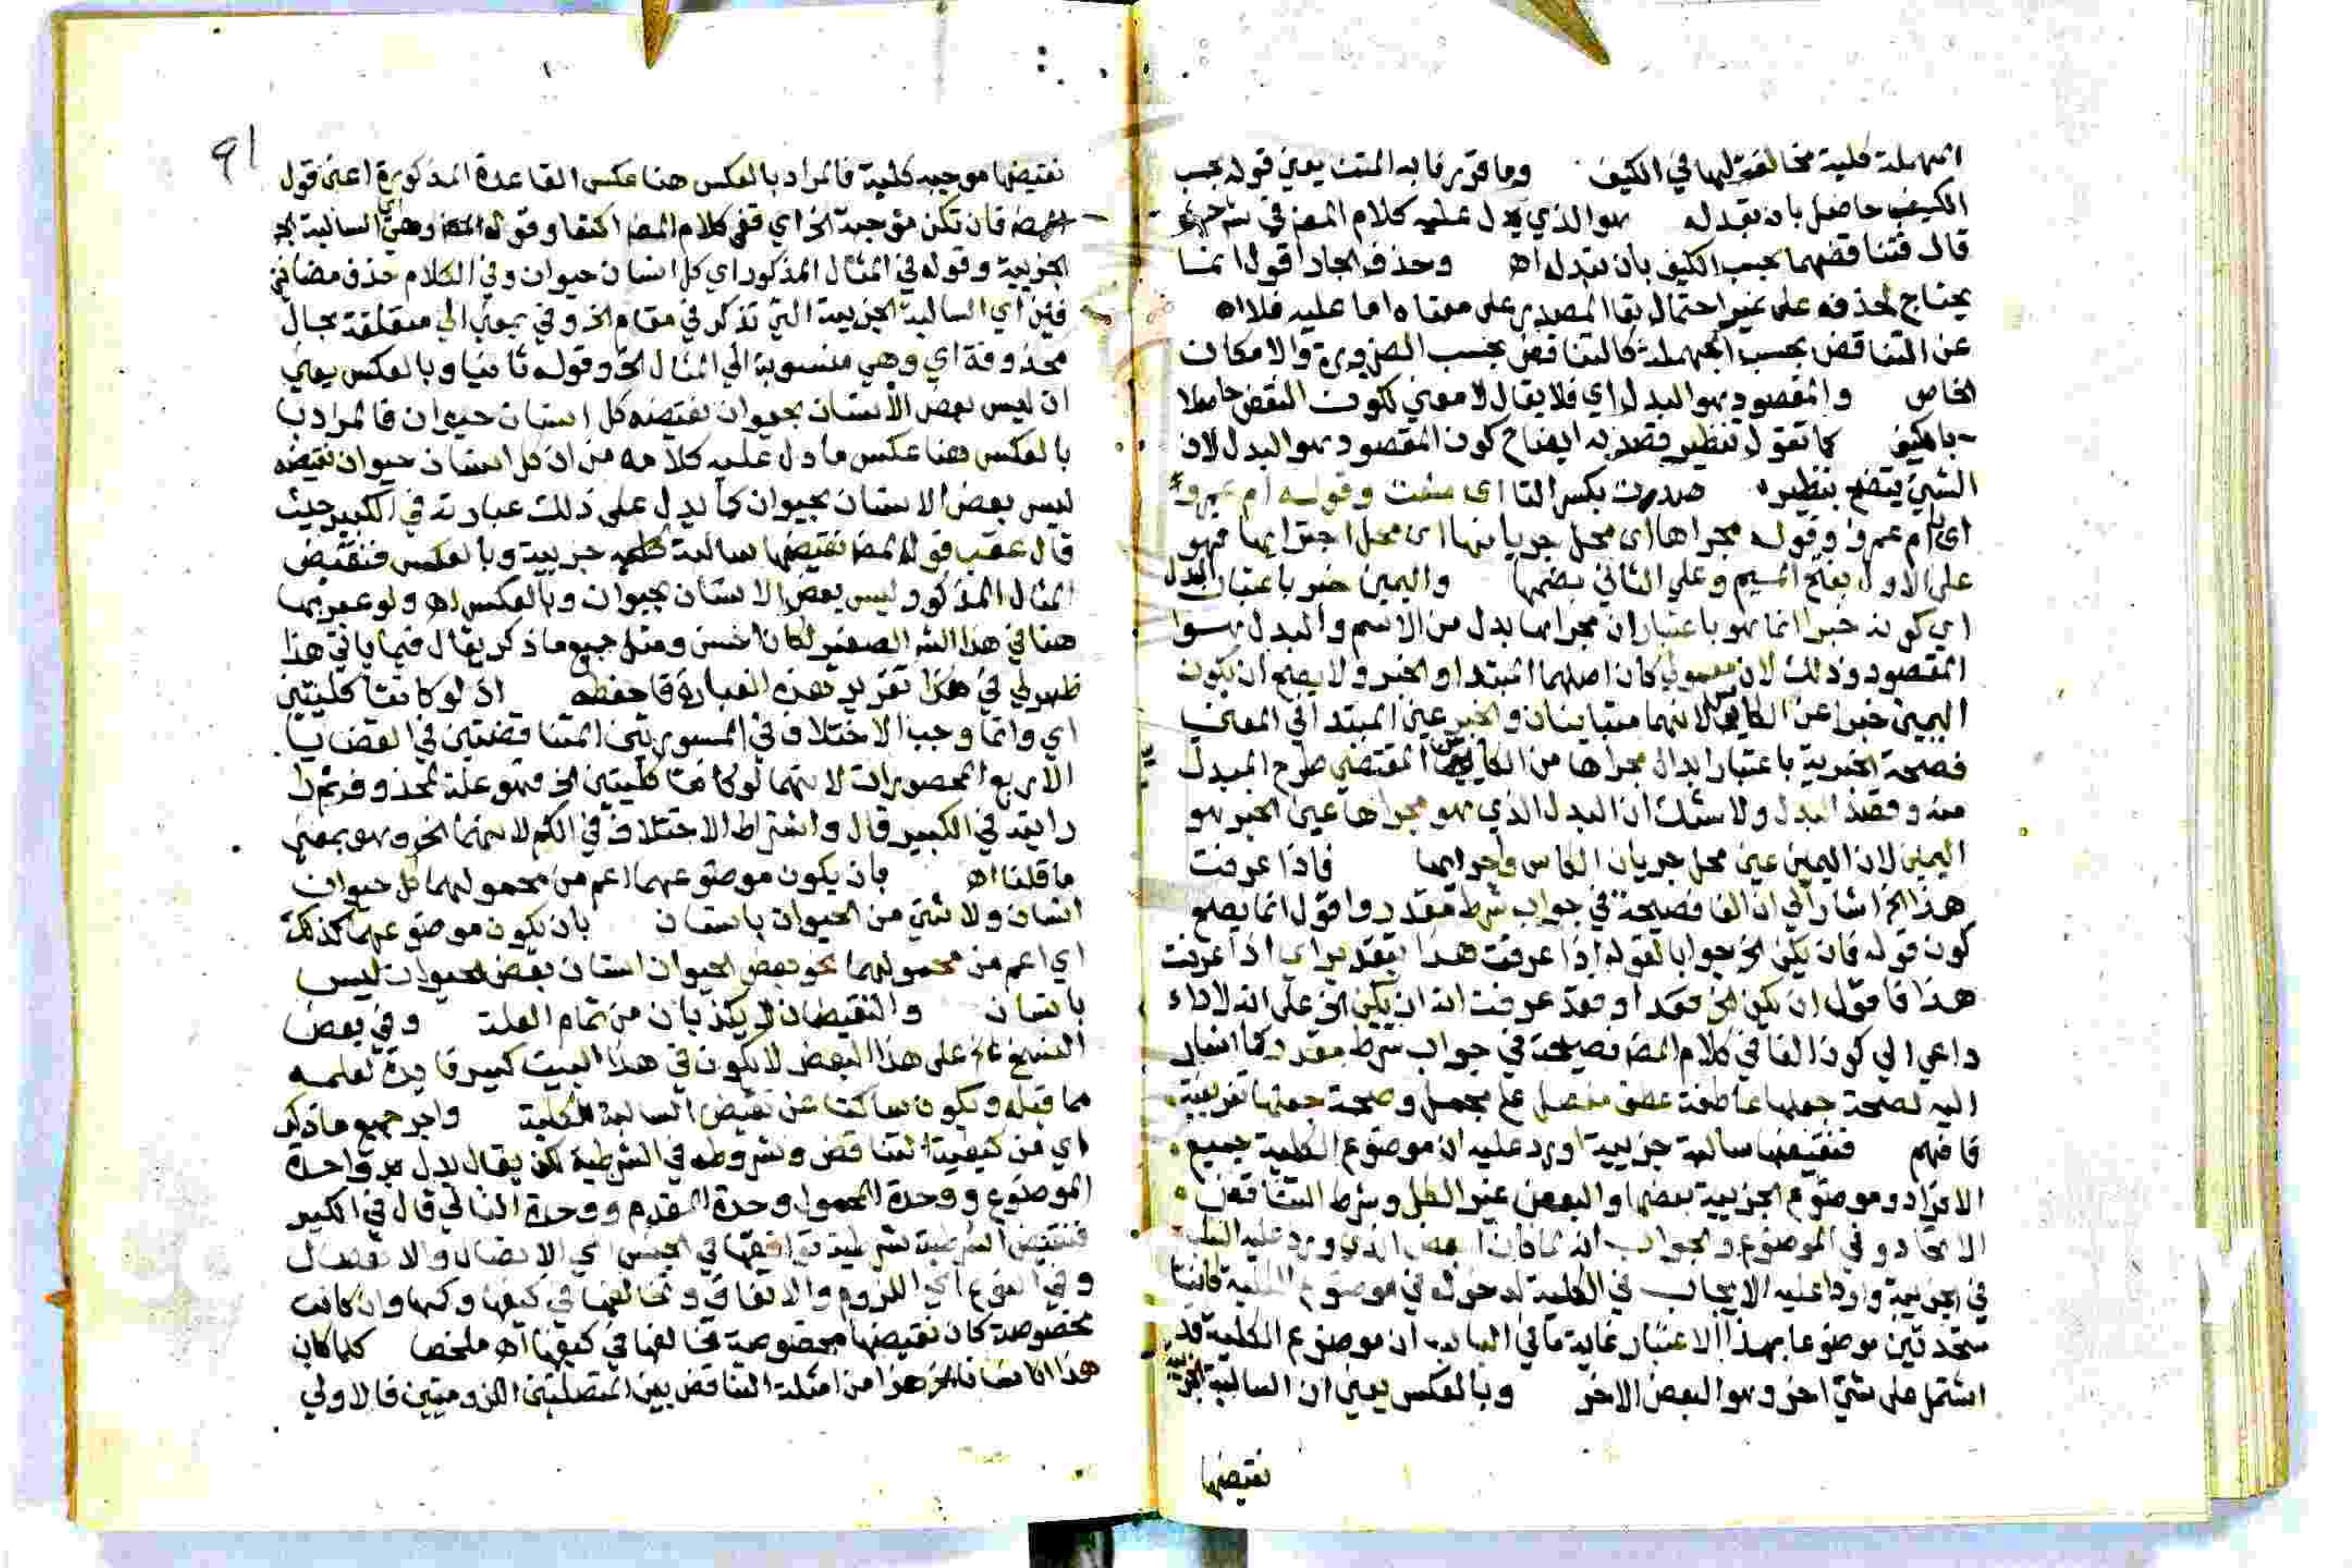 المهملة كلية مخالفة لها في الكيف وما قررنا به المتن يعني قوله بحسب
الكيف حاصل بان تبدله هو الذي يدل عليه كلام المص في شرحه
قال فتناقضهما بحسب الكيف بان تبدله اه وحذف الجار اقول انما
يحتاج لحذفه على غير احتمال بقا المصدر على معناه اما عليه فلا اه
عن التناقض بحسب الجهة كالتناقض بحسب الضرورة والامكان
الخاص والمقصود هو البدل اي فلا يقال لا معني لكون النقض حاصلا
بالكيف كما تقول تنظير قصد به ايضاح كون المقصود هو البدل لان
الشي يتضح بنظيره صددت بكسر التا اي منعت وقوله ام عمرو
اي يا ام عمرو وقوله مجراها اي محل جريانها اي محل اجرايها فهو
على الاول بفتح الميم وعلي الثاني بضمها واليمين خبر باعتبار البدل
اي كونه خبرا انما هو باعتبار ان مجراها بدل من الاسم والبدل هو
المقصود وذلك لان معمولي كان اصلهما المبتدا والخبر ولا يصح ان يكون
اليمين خبرا عن الكاس لانهما متباينان والخبر عين المبتدا في المعني
فصحة الخبرية باعتبار ابدال مجراها من الكاس المقتضي طرح المبدل
منه وقصد البدل ولا شك ان البدل الذي هو مجراها عين الخبر هو
اليمين لان اليمين عين محل جريان الكاس واجرايها فاذا عرفت
هذا الخ اشار الي ان الفا فصيحة في جواب شرط مقدر واقول انما يصح
كون قوله فان يكن الخ جوابا لقوله اذا عرفت هذا بتقدير اي اذا عرفت
هذا فاقول ان يكن الخ فقد او فقد عرفت انه ان يكن الخ على انه لا داء
داعي الي كون الفا في كلام المص فصيحة في جواب شرط مقدر كما اشار
اليه لصحة جعلها عاطفة عطف مفصل على مجمل وصحة جعلها تفريعية
فافهم فنقيضها سالبة جزيية اورد عليه ان موضوع الكلية جميع
الافراد وموضوع الجزيية بعضها والبعض غير الكل وشرط التناقض
الاتحاد في الموضوع والجواب انه لما كان البعض الذي ورد عليه السلب
في الجزيية واردا عليه الايجاب في الكلية لدخوله في موضوع الكلية كانتا
متحدتين موضوعا بهذا الاعتبار غاية ما في الباب ان موضوع الكلية قد
اشتمل على شي اخر وهو البعض الاخر وبالعكس يعني ان السالبة الجزيية
نقيضها
91
نقيضها موجبه كلية فالمراد بالعكس هنا عكس القاعدة المذكورة اعني قول
المص فان تكن موجبة الخ اي ففي كلام المص اكتفا وقوله وهي اي السالبة
الجزيية وقوله في المثال المذكور اي كل انسان حيوان وفي الكلام حذف مضافين
اي السالبة الجزيية التي تذكر في مقام الخ وفي بمعني الي متعلقة بحال
محذوفة اي وهي منسوبة الي المثال الخ وقوله ثانيا وبالعكس يعني
ان ليس بعض الانسان بحيوان نقيضه كل انسان حيوان فالمراد
بالعكس هنا عكس ما دل عليه كلامه من ان كل انسان حيوان نقيضه
ليس بعض الانسان بحيوان كما يدل على ذلك عبارته في الكبير حيث
قال عقب قول المص نقيضها سالبة جزيية وبالعكس فنقيض
المثال المذكور ليس بعض الانسان بحيوان وبالعكس اه ولو عبر بها
هنا في هذا الشر الصغير لكان احسن ومثل جميع ما ذكر يقال فيما ياتي هذا
ظهر لي في هذا تقرير هذه العبارة فاحفظه اذ لو كانتا كليتين
اي وانما وجب الاختلاف في المسورتين المتناقضتين في القضايا
الاربع المحصورات لانهما لو كانتا كليتين الخ فهو علة لمحذوف ثم
رايته في الكبير قال واشتراط الاختلاف في الكم لانهما الخ وهو بمعني
ما قلنا اه بان يكون موضوعهما اعم من محمولهما كل حيوان
انسان ولا شي من الحيوان بانسان بان يكون موضوعهما كذلك
اي اعم من محمولهما نحو بعض الحيوان انسان بعض الحيوان ليس
بانسان والنقيضان لا يكذبان من تمام العلة وفي بعض
النسخ على هذا البعض لا يكون في هذا البيت كبير فايدة لعلمه
مما قبله ويكون ساكتا عن نقيض السالبة الكلية واجر جميع ما ذكر
اي من كيفية التناقض وشروطه في الشرطية لكن يقال بدل وحدة
الموضوع ووحدة المحمول وحدة المقدم ووحدة التالي قال في الكبير
فنقيض الشرطية شرطية توافقها في الجنس اي الاتصال والانفصال
وفي النوع اي اللزوم والاتفاق وتخالفها في كيفها وكمها وان كانت
مخصوصة كان نقيضها مخصوصة تخالفها في كيفها اه ملخصا كلما كان
هذا انسانا الخ هذا من امثلة التناقض بين المتصلتين اللزوميتين فالاولي